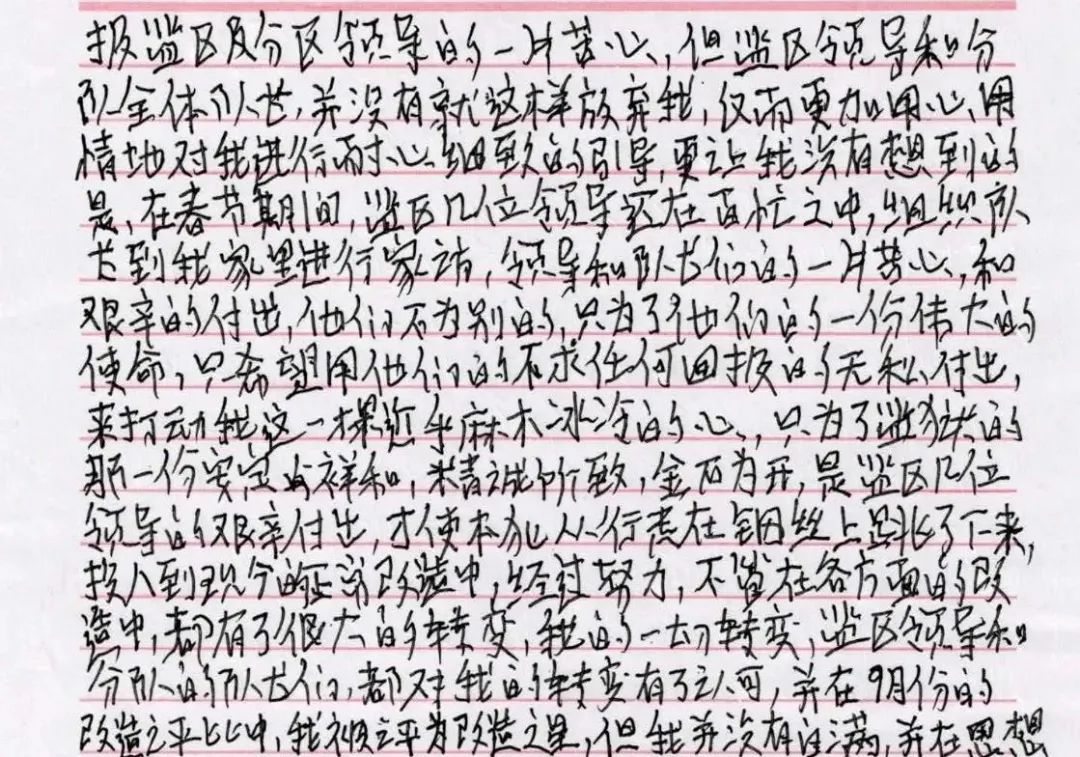 报监区及分区领导的一片苦心,但监区领导和分
队全体队长,并没有就这样放弃我,仅而更加用心、用
情地对我进行耐心细致的引导,更让我没有想到的
是,在春节期间,监区几位领导实在百忙之中,组织队
长到我家里进行家访,领导和队长们的一片苦心,和
艰辛的付出,他们不为别的,只为了他们的一份伟大的
使命,只希望用他们的不求任何回报的无私付出,
来打动我这一棵近乎麻木冰冷的心,只为了监狱的
那一份安定与祥和,精诚所致,金石为开,是监区几位
领导的艰辛付出,才使本犯从行走在钢丝上跳了下来,
投入到现今的正常改造中,经过努力,不管在各方面的改
造中,都有了很大的转变,我的一切转变,监区领导和
分队的队长们,都对我的转变有了认可,并在9月份的
改造评比中,我被评为改造之星,但我并没有自满,并在思想